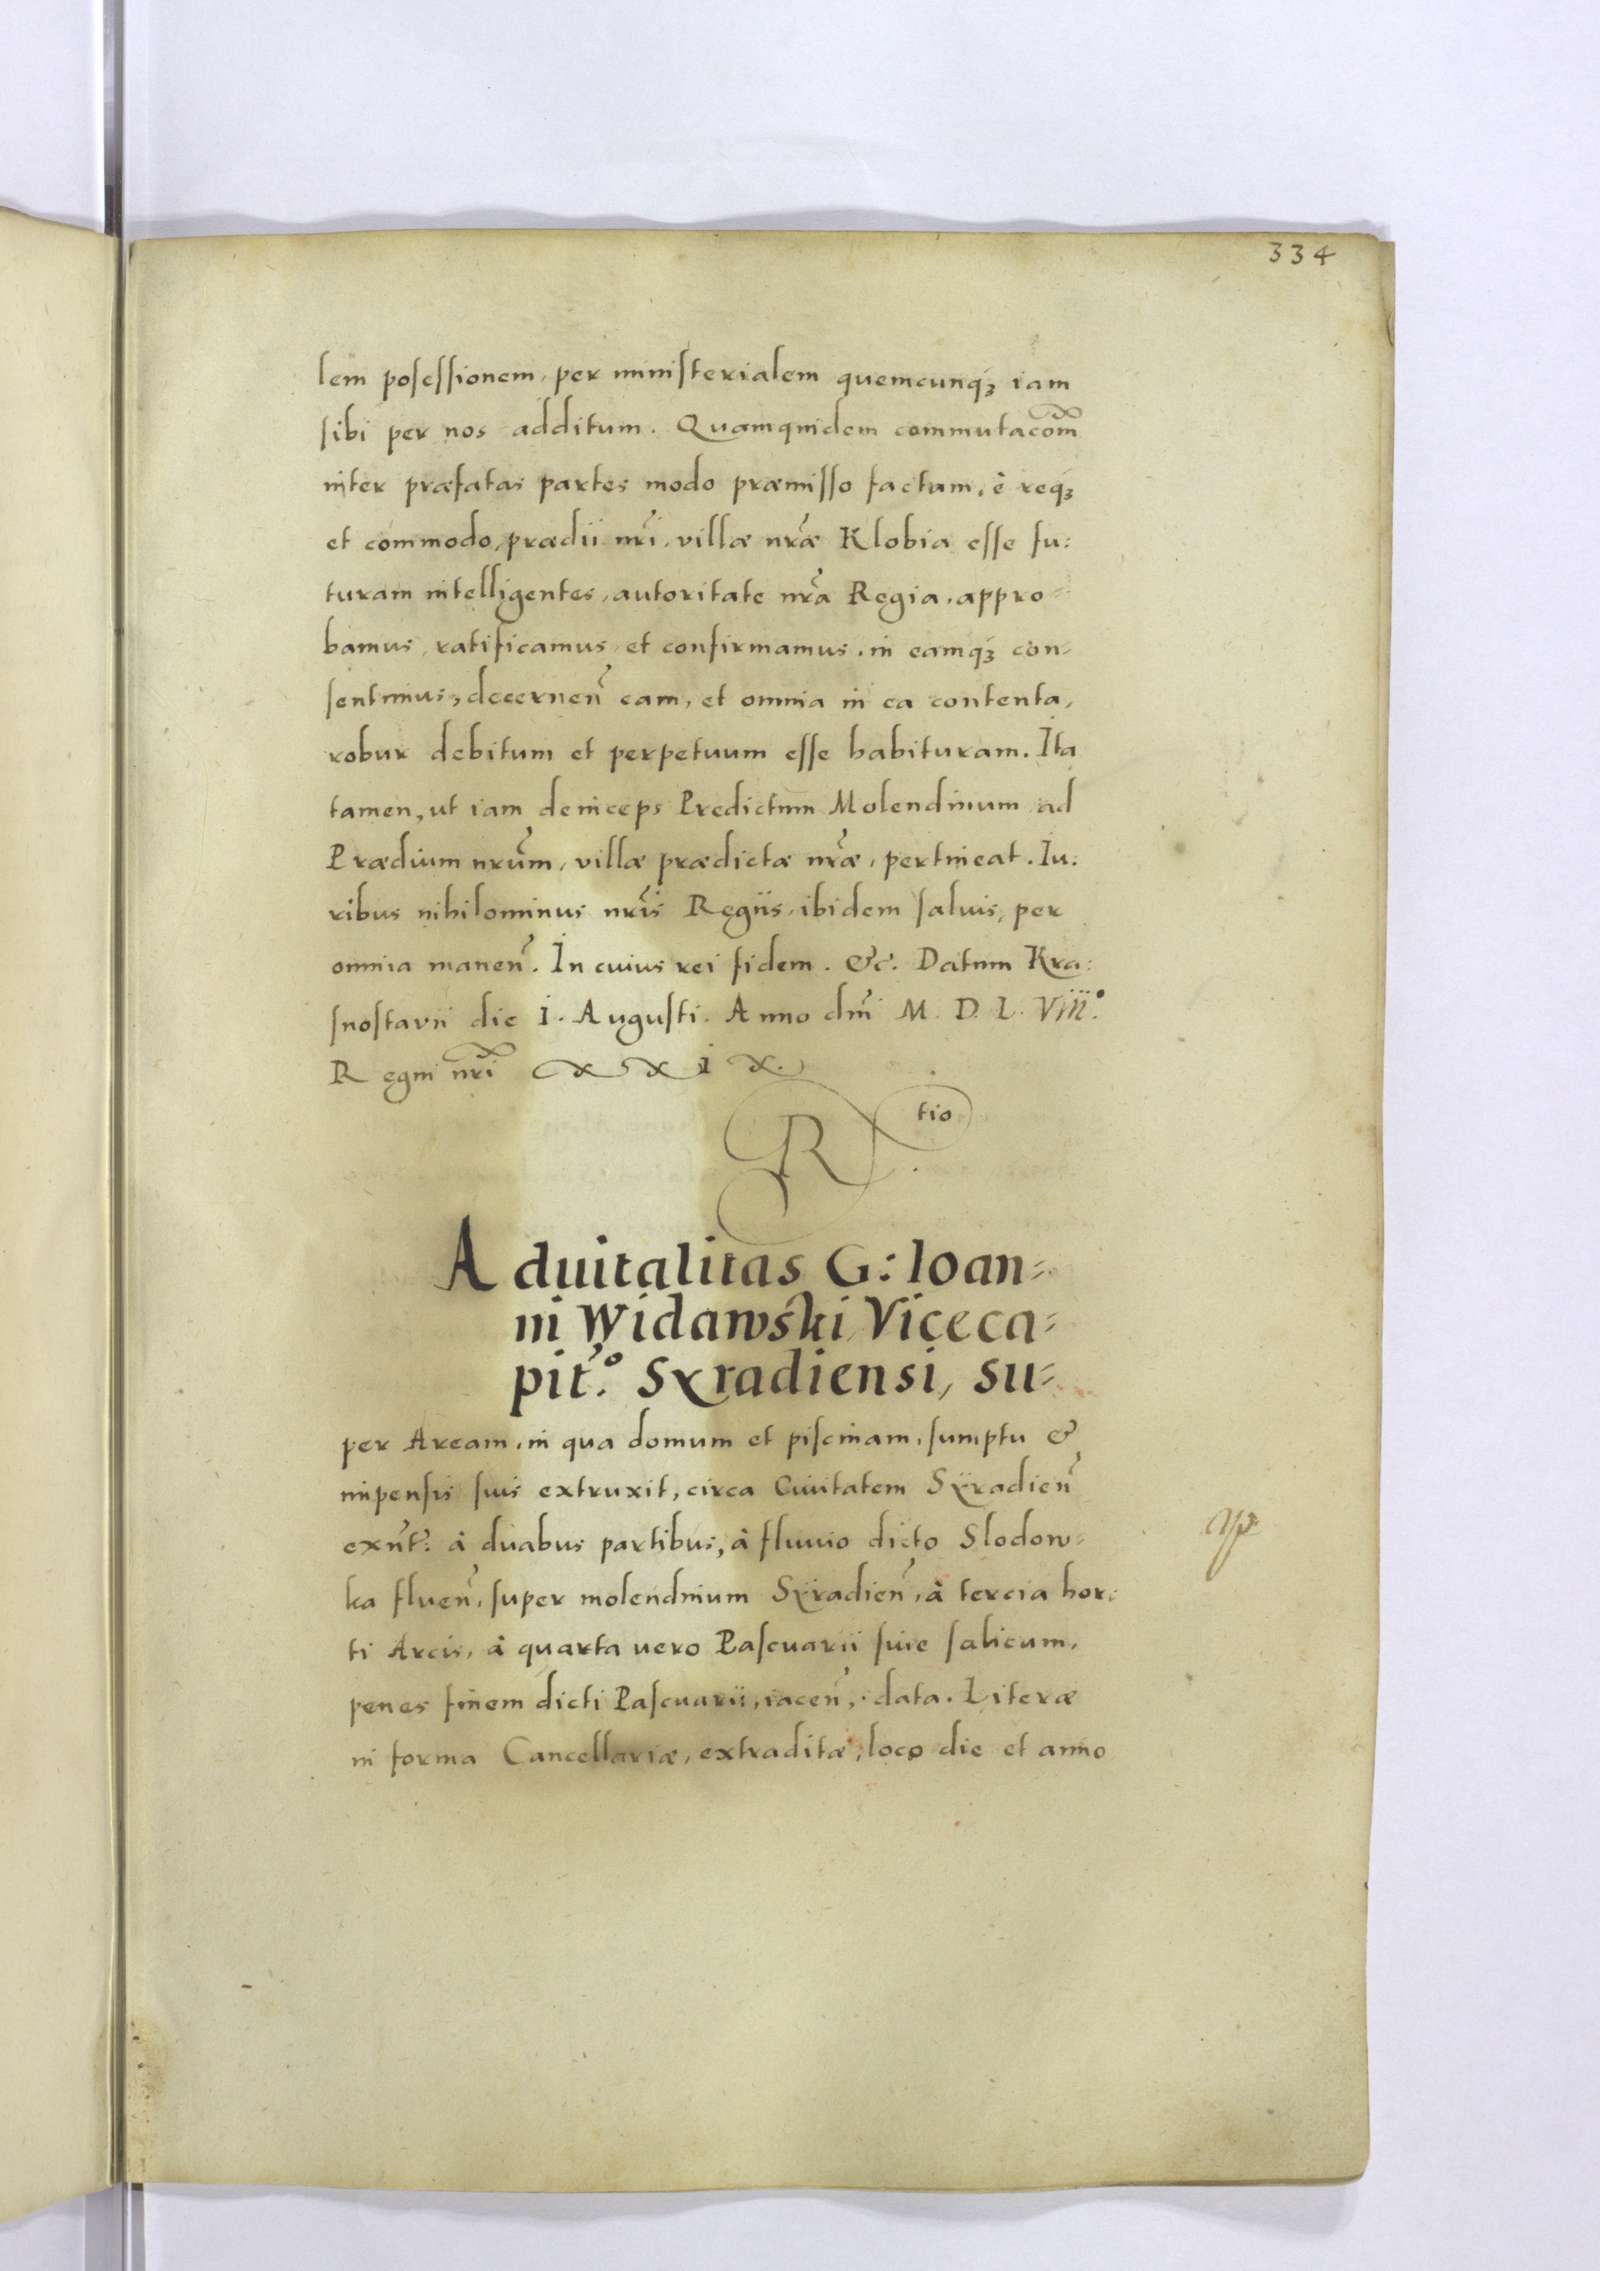 334
lem posessionem, per ministerialem quemcunq́ꝫ iam
sibi per nos additum. Quamquidem commutacom̃
inter præfatas partes modo præmisso factam, è req́ꝫ
et commodo, prædii nr̃i, villæ nr̃æ Klobia esse fu:
turam intelligentes, autoritate nr̃a Regia, appro=
bamus, ratificamus, et confirmamus, in eamq́ꝫ con-
sentimus, decernen̄ eam, et omnia in ea contenta,
robur debitum et perpetuum esse habituram. Ita
tamen, ut iam deinceps Predictum Molendinum ad
Prædium nrũm, villæ prædictæ nr̃æ, pertineat. Iu:
ribus nihilominus nrĩs Regiis, ibidem salvis, per
omnia manen̄. In cuius rei fidem. &c. Datum Kra:
snostavii die I. Augusti. Anno dñi M. D. L. Viii.°
Regni nr̃i xxix.
R tio
Aduitalitas G: Ioan=
ni Widawski, Viceca=
pit̃.° Syradiensi, su=
per Aream, in qua domum et piscinam, sumptu &
impensis suis extruxit, circa Civitatem Sÿradien̄
exñt: à duabus partibus, à fluvio dicto Slodow=
ka fluen̄, super molendinum Sÿradien̄, à tercia hor:
ti Arcis, à quarta vero Pascuarii sive salicum,
penes finem dicti Pascuarii, iacen̄, data. Literæ
in forma Cancellariæ, extraditæ, loco die et anno